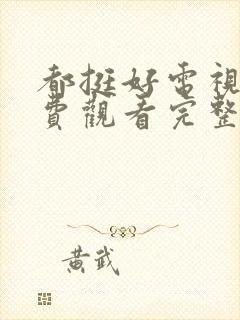 都挺好電視
費觀看完整
黃武